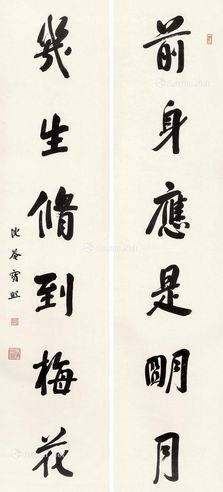 前身應是朙月
幾生脩到梅花
沈菴寶熙